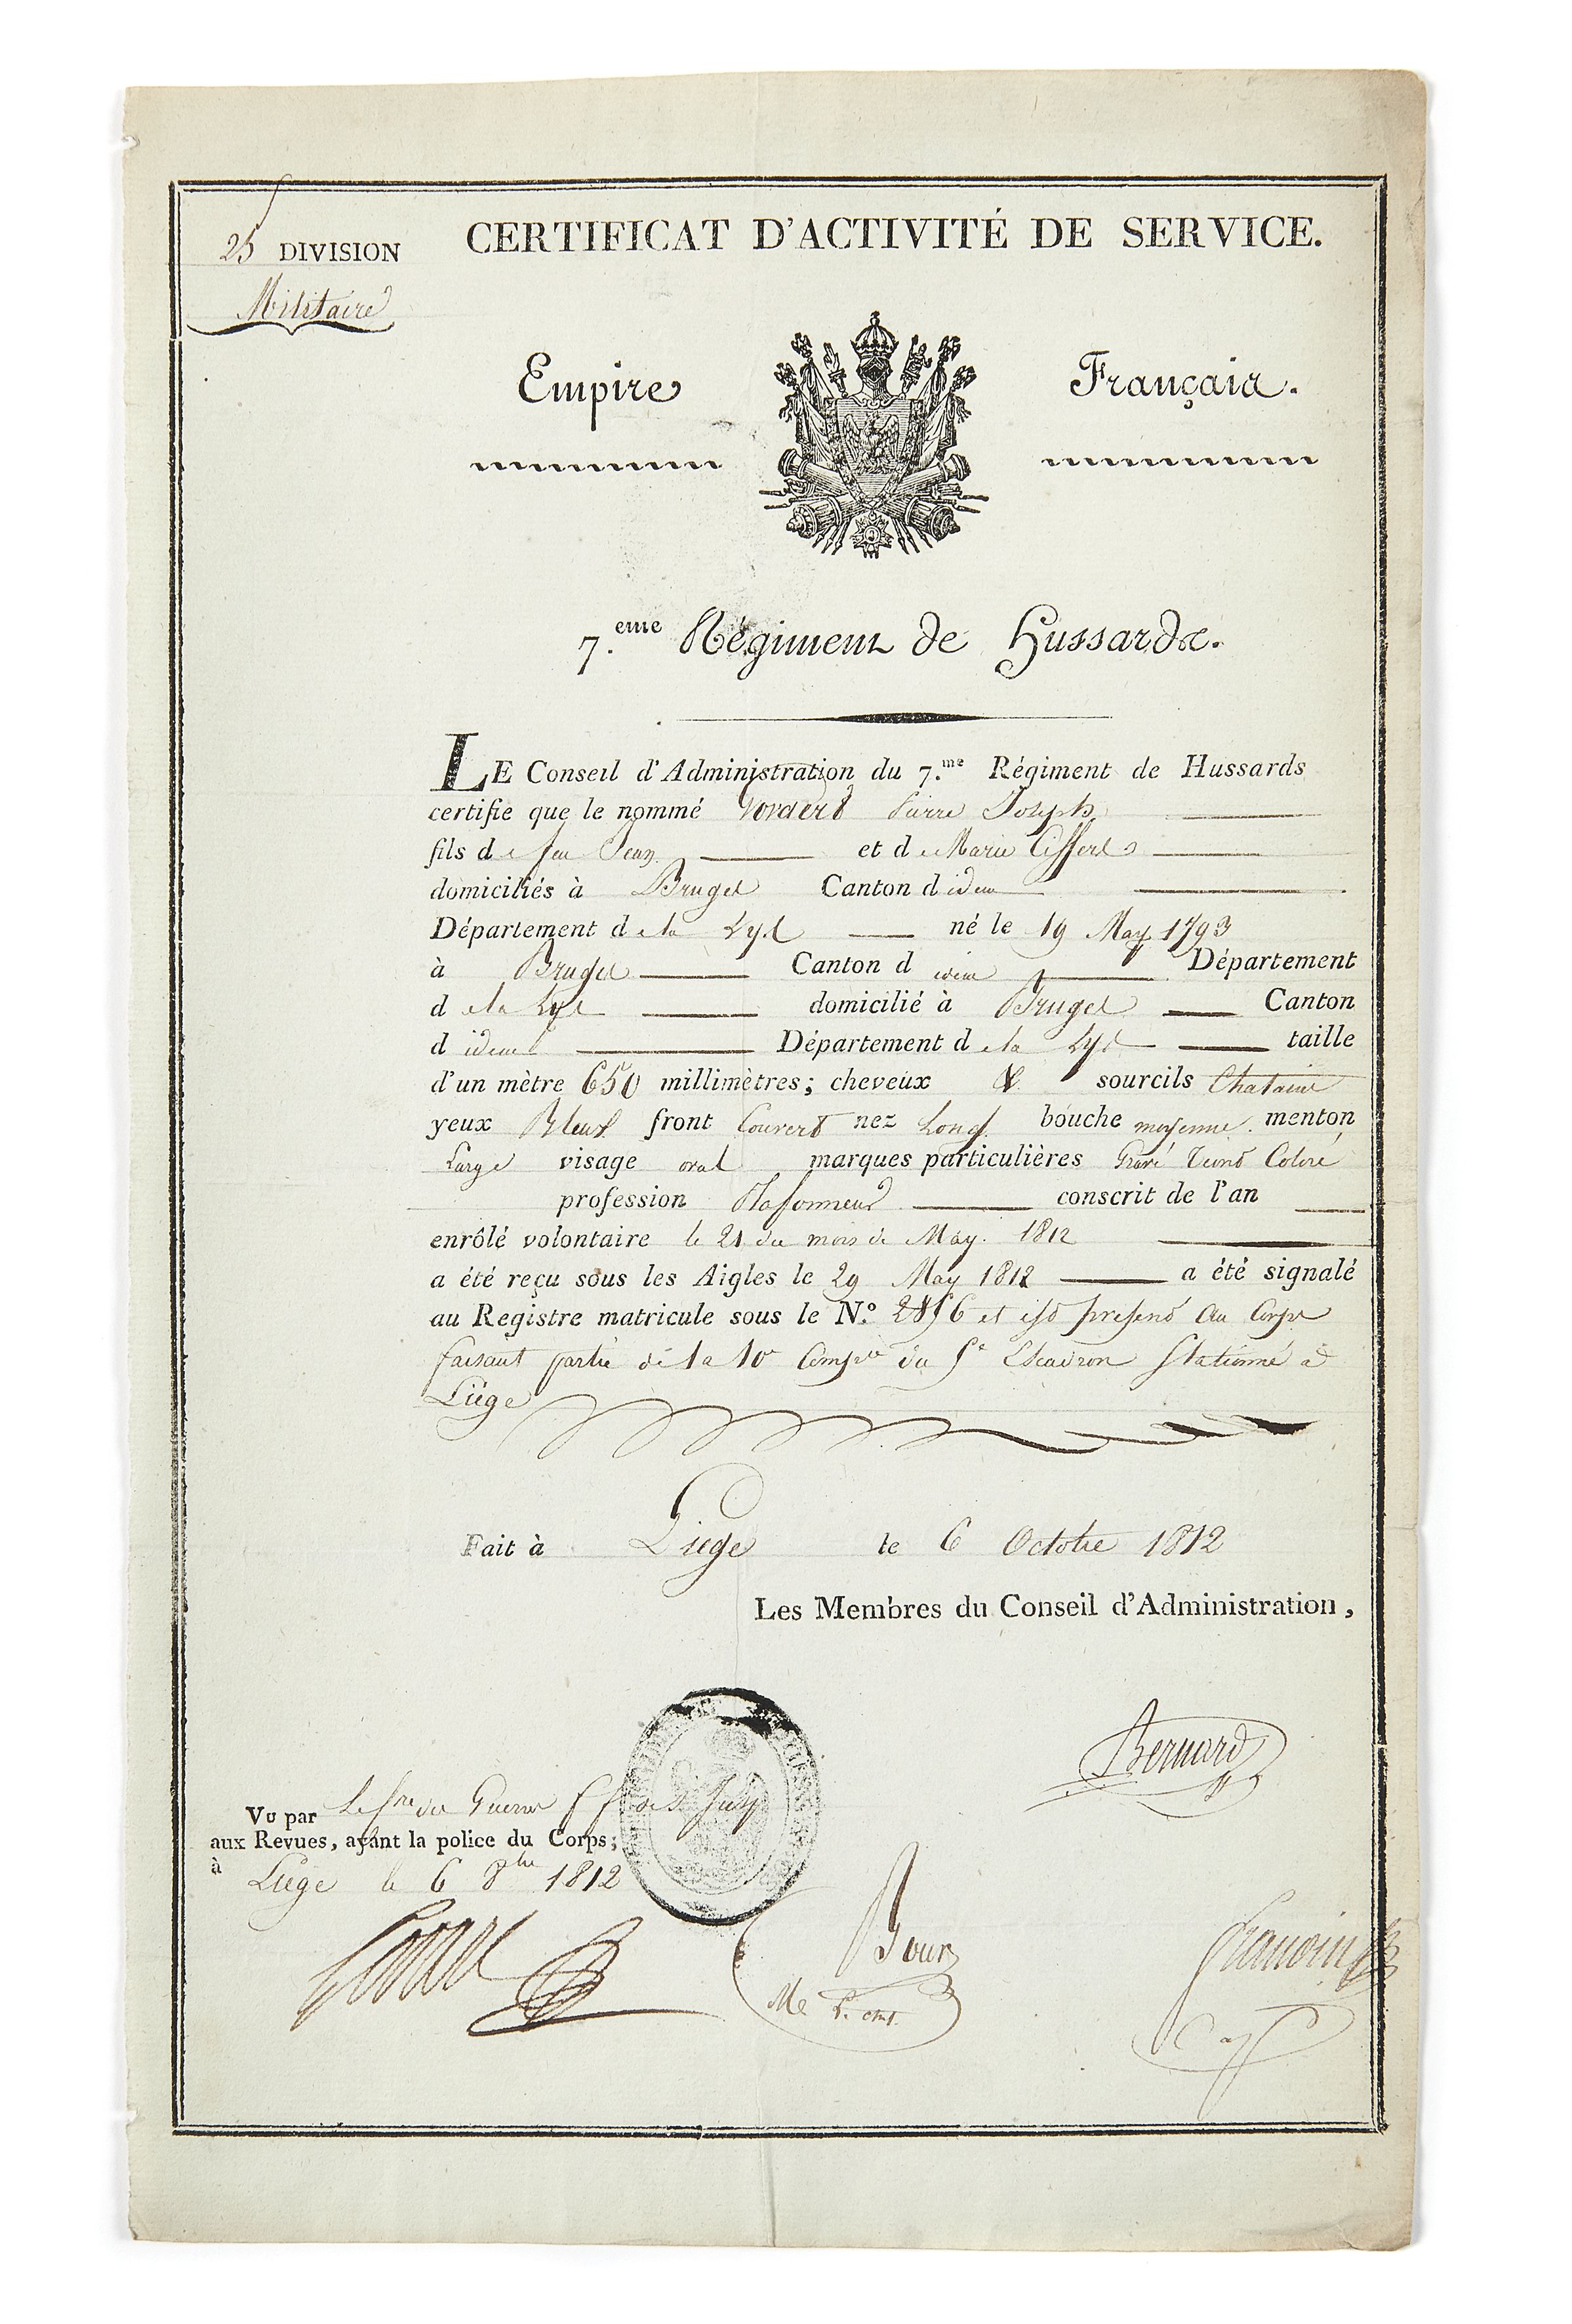 25 DIVISION
Militaire
CERTIFICAT D'ACTIVITÉ DE SERVICE.
Empire Français.
7.eme Régiment de Hussards.
LE Conseil d'Administration du 7.me Régiment de Hussards
certifie que le nommé Pierre Joseph
fils de feu Jean et de Marie
domiciliés à Bruges Canton d idem
Département de la Lys né le 19 May 1793
à Bruges Canton d idem Département
de la Lys domicilié à Bruges Canton
d idem Département de la Lys taille
d'un mètre 650 millimètres; cheveux & sourcils Chatains
yeux Bleus front Couvert nez Long bouche moyenne menton
Large visage oval marques particulières Gravé Teint Coloré
profession Plafonneur conscrit de l'an
enrôlé volontaire le 21 du mois de May 1812
a été reçu sous les Aigles le 29 May 1812 a été signalé
au Registre matricule sous le N.o 2856 et est présent au Corps
faisant partie de la 10e Compie du 5e Escadron Stationné à
Liège
Fait à Liège le 6 Octobre 1812
Les Membres du Conseil d'Administration,
Bernard
Vu par des Guerres
aux Revues, ayant la police du Corps;
à Liège le 6 8bre 1812